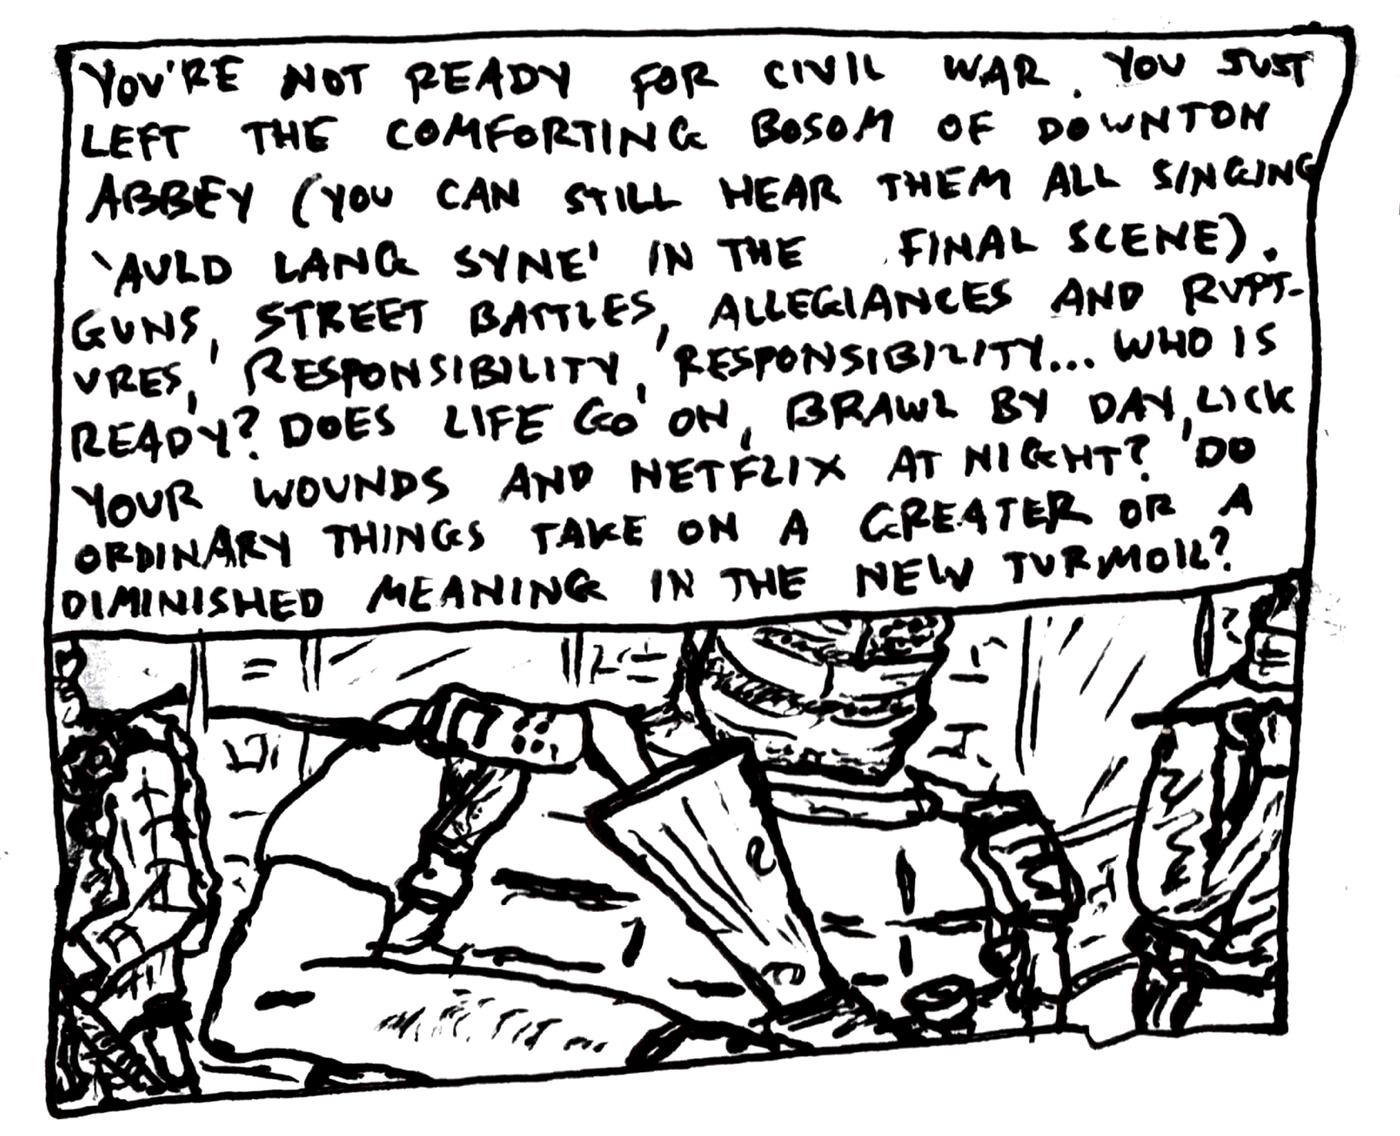 YOU'RE NOT READY FOR CIVIL WAR. YOU JUST
LEFT THE COMFORTING BOSOM OF DOWNTON
ABBEY (YOU CAN STILL HEAR THEM ALL SINGING
'AULD LANG SYNE' IN THE FINAL SCENE).
GUNS, STREET BATTLES, ALLEGIANCES AND RUPT-
URES, RESPONSIBILITY, RESPONSIBILITY... WHO IS
READY? DOES LIFE GO ON, BRAWL BY DAY, LICK
YOUR WOUNDS AND NETFLIX AT NIGHT? DO
ORDINARY THINGS TAKE ON A GREATER OR A
DIMINISHED MEANING IN THE NEW TURMOIL?